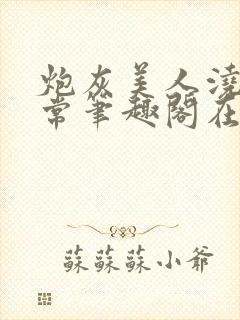 炮灰美人浇
常笔趣阁在
蘇蘇蘇小爺